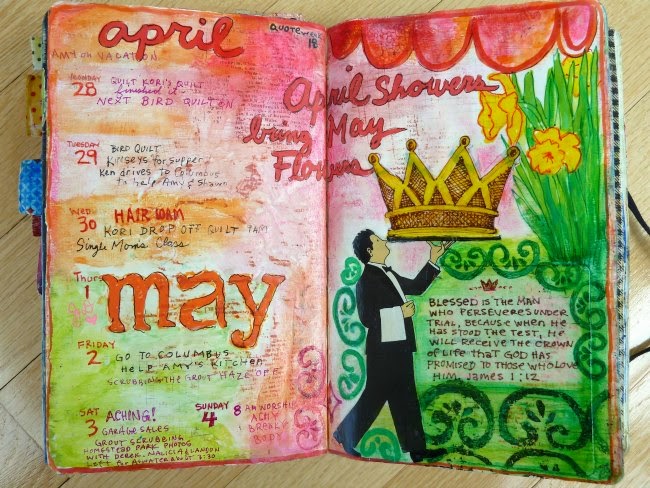 april
QUOTE WEEK
18
AMY on VACATION
MONDAY
28
QUILT KORI'S QUILT
finished it
NEXT BIRD QUILT ON
TUESDAY
29
BIRD QUILT
Kinseys for supper
Ken drives to Columbus
to help Amy & Shawn
WED
30
HAIR 10AM
KORI DROP OFF QUILT 9AM
Single Moms Class
Thurs
1
may
FRIDAY
2
GO to COLUMBUS
HELP AMY'S KITCHEN
SCRUBBING THE GROUT HAZE OFF
SAT
3
ACHING!
GARAGE SALES
GROUT SCRUBBING
HOMESTEAD PARK PHOTOS
WITH DEREK, MALICIA & LANDON
SUNDAY
4
8 AM WORSHIP
ACHY
BREAKY
BODY
April Showers
bring May
Flowers
BLESSED IS THE MAN
WHO PERSEVERES UNDER
TRIAL, BECAUSE WHEN HE
HAS STOOD THE TEST, HE
WILL RECEIVE THE CROWN
OF LIFE that GOD HAS
PROMISED TO THOSE WHO LOVE
HIM. James 1:12